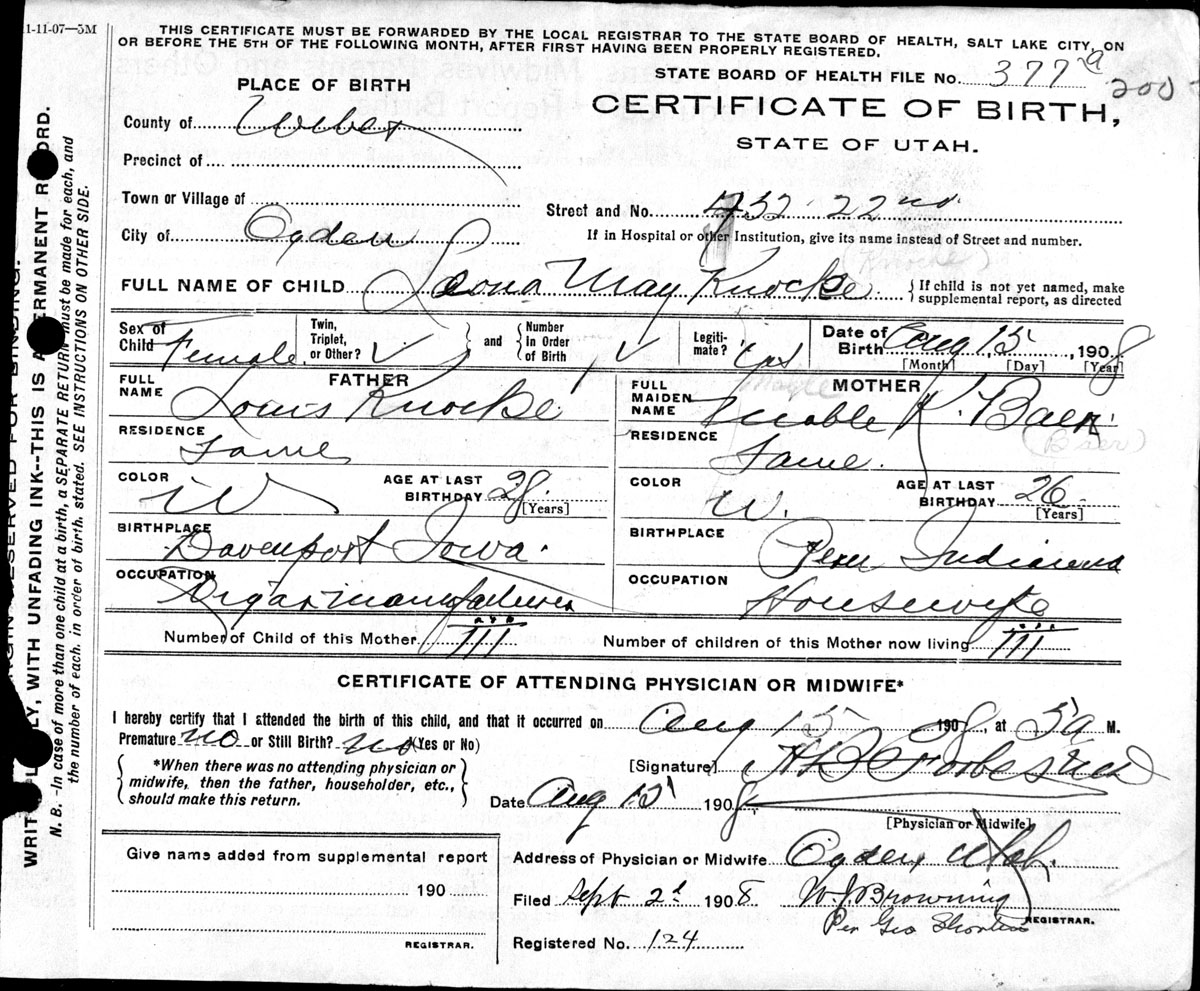 11-11-07—5M
THIS CERTIFICATE MUST BE FORWARDED BY THE LOCAL REGISTRAR TO THE STATE BOARD OF HEALTH, SALT LAKE CITY, ON
OR BEFORE THE 5TH OF THE FOLLOWING MONTH, AFTER FIRST HAVING BEEN PROPERLY REGISTERED.
STATE BOARD OF HEALTH FILE No. 377 a
200
PLACE OF BIRTH
CERTIFICATE OF BIRTH,
STATE OF UTAH.
County of Weber
Precinct of
Town or Village of
Street and No. 432 22nd
City of Ogden
If in Hospital or other Institution, give its name instead of Street and number.
(Knocke)
FULL NAME OF CHILD Leona May Knocke
If child is not yet named, make
supplemental report, as directed
Sex of Child Female
Twin, Triplet, or Other? ✓
and
Number in Order of Birth ✓
Legiti-mate? Yes
Date of Birth Aug 15, 1908
[Month] [Day] [Year]
FATHER
FULL NAME Louis Knocke
RESIDENCE Same
COLOR W
AGE AT LAST BIRTHDAY 28
[Years]
BIRTHPLACE Davenport Iowa.
OCCUPATION Cigar manufacturer
MOTHER
FULL MAIDEN NAME Mable K. Baer
(Baer)
RESIDENCE Same.
COLOR W.
AGE AT LAST BIRTHDAY 26
[Years]
BIRTHPLACE Peru Indiana
OCCUPATION Housewife
Number of Child of this Mother III
Number of children of this Mother now living III
CERTIFICATE OF ATTENDING PHYSICIAN OR MIDWIFE*
I hereby certify that I attended the birth of this child, and that it occurred on Aug 15 1908, at 5a M.
Premature no or Still Birth? no (Yes or No)
*When there was no attending physician or
midwife, then the father, householder, etc.,
should make this return.
[Signature] Forbes
Date Aug 15 1908
[Physician or Midwife]
Give name added from supplemental report
190
REGISTRAR.
Address of Physician or Midwife Ogden Utah.
Filed Sept 2d 1908 W. J. Browning
REGISTRAR.
Per Geo
Registered No. 124
WITH UNFADING INK--THIS IS A PERMANENT RECORD.
N. B. -In case of more than one child at a birth, a SEPARATE RETURN must be made for each, and
the number of each. in order of birth, stated. SEE INSTRUCTIONS ON OTHER SIDE.